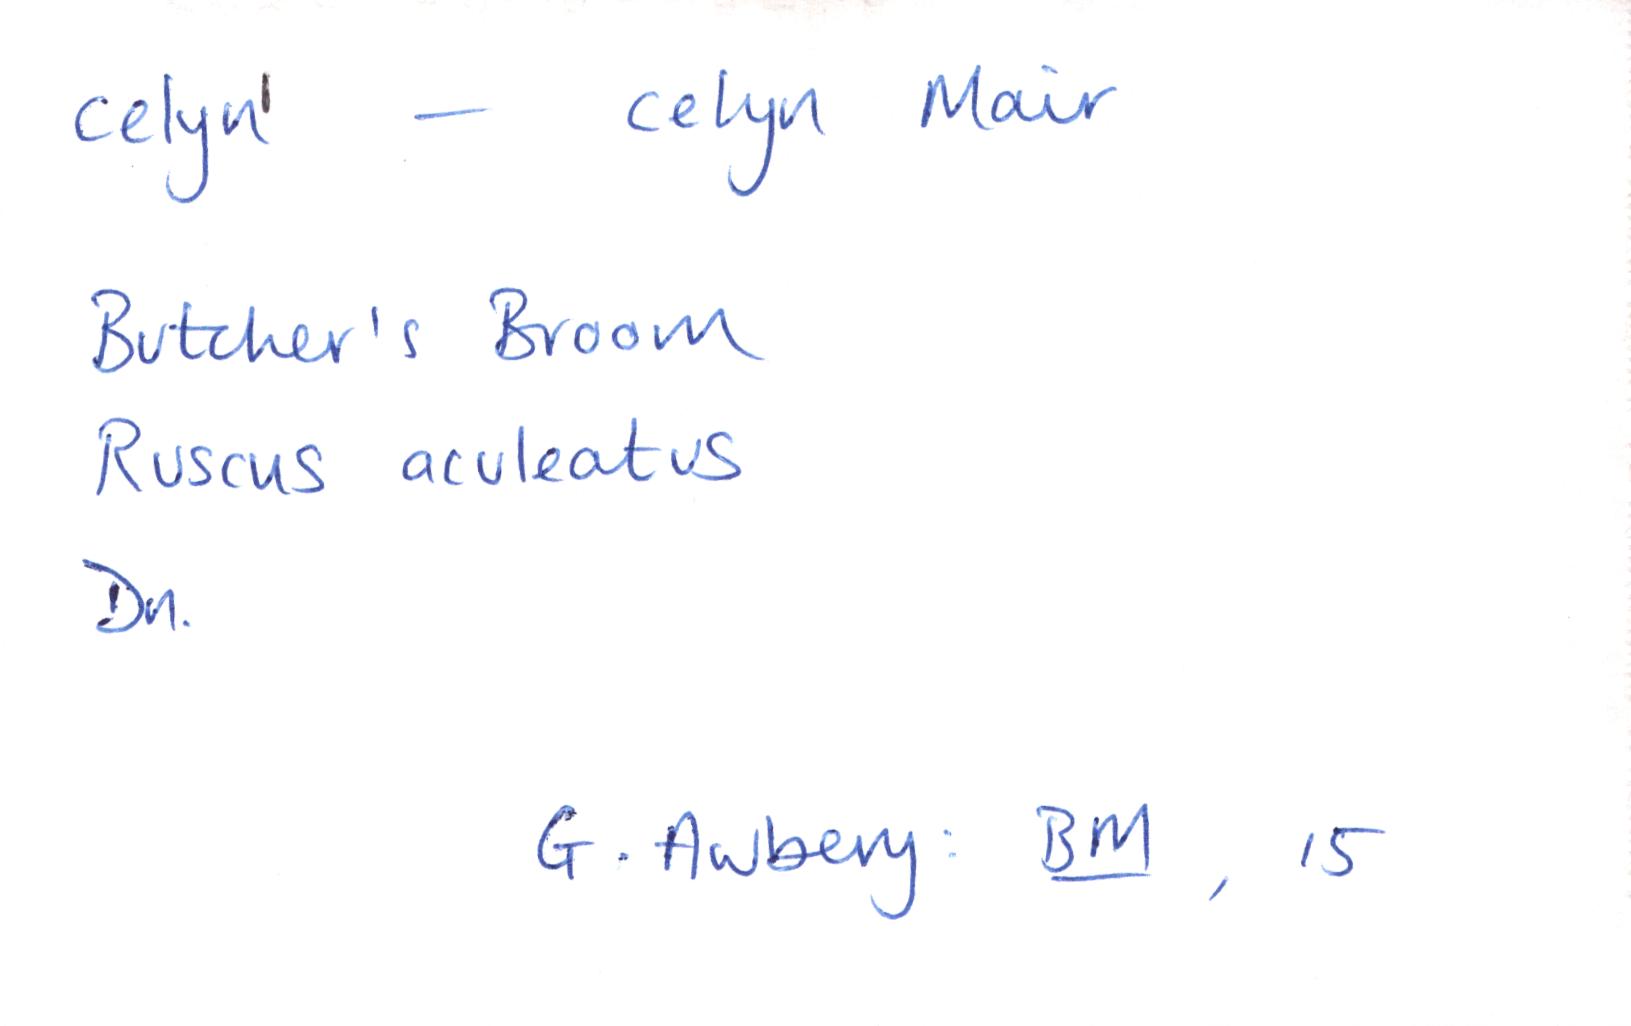 celyn¹ — celyn Mair
Butcher's Broom
Ruscus aculeatus
Dn.
G. Awbery: BM, 15